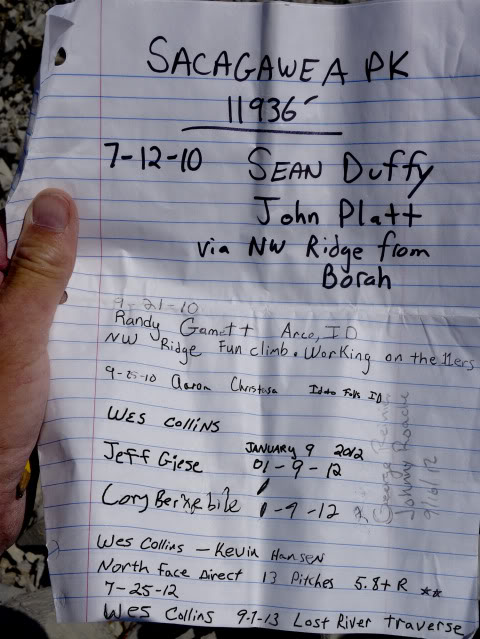 SACAGAWEA PK
11936'
7-12-10 SEAN Duffy
John Platt
via NW Ridge from
Borah
9-21-10
Randy Gamett Arco, ID
NW Ridge Fun climb. Working on the 11ers
9-25-10 Aaron Idaho Falls ID
WES COLLINS
Jeff Giese JANUARY 9 2012
01-9-12
Cory 1-9-12
George
Johnny Roache
9/6/12
Wes Collins - Kevin Hansen
North Face Direct 13 Pitches 5.8+ R **
7-25-12
Wes Collins 9-1-13 Lost River traverse